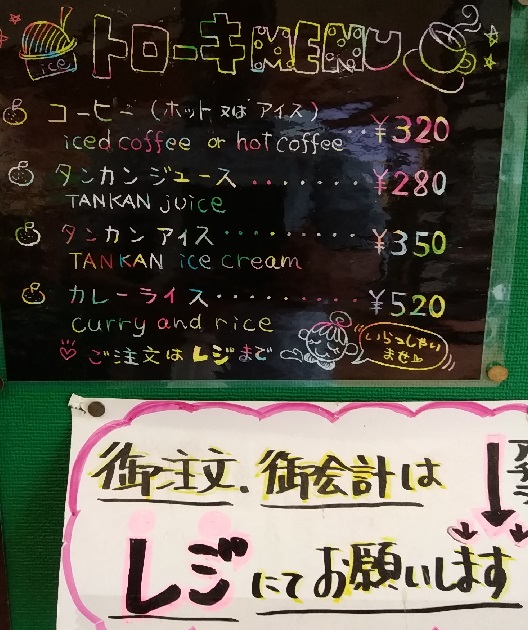 ice
トローキMENU
コーヒー (ホット又はアイス)
iced coffee or hot coffee ¥320
タンカンジュース ........ ¥280
TANKAN juice
タンカンアイス ......... ¥350
TANKAN ice cream
カレーライス .......... ¥520
curry and rice
ご注文はレジまで
いらっしゃい
ませ
御注文.御会計は
レジにてお願いします